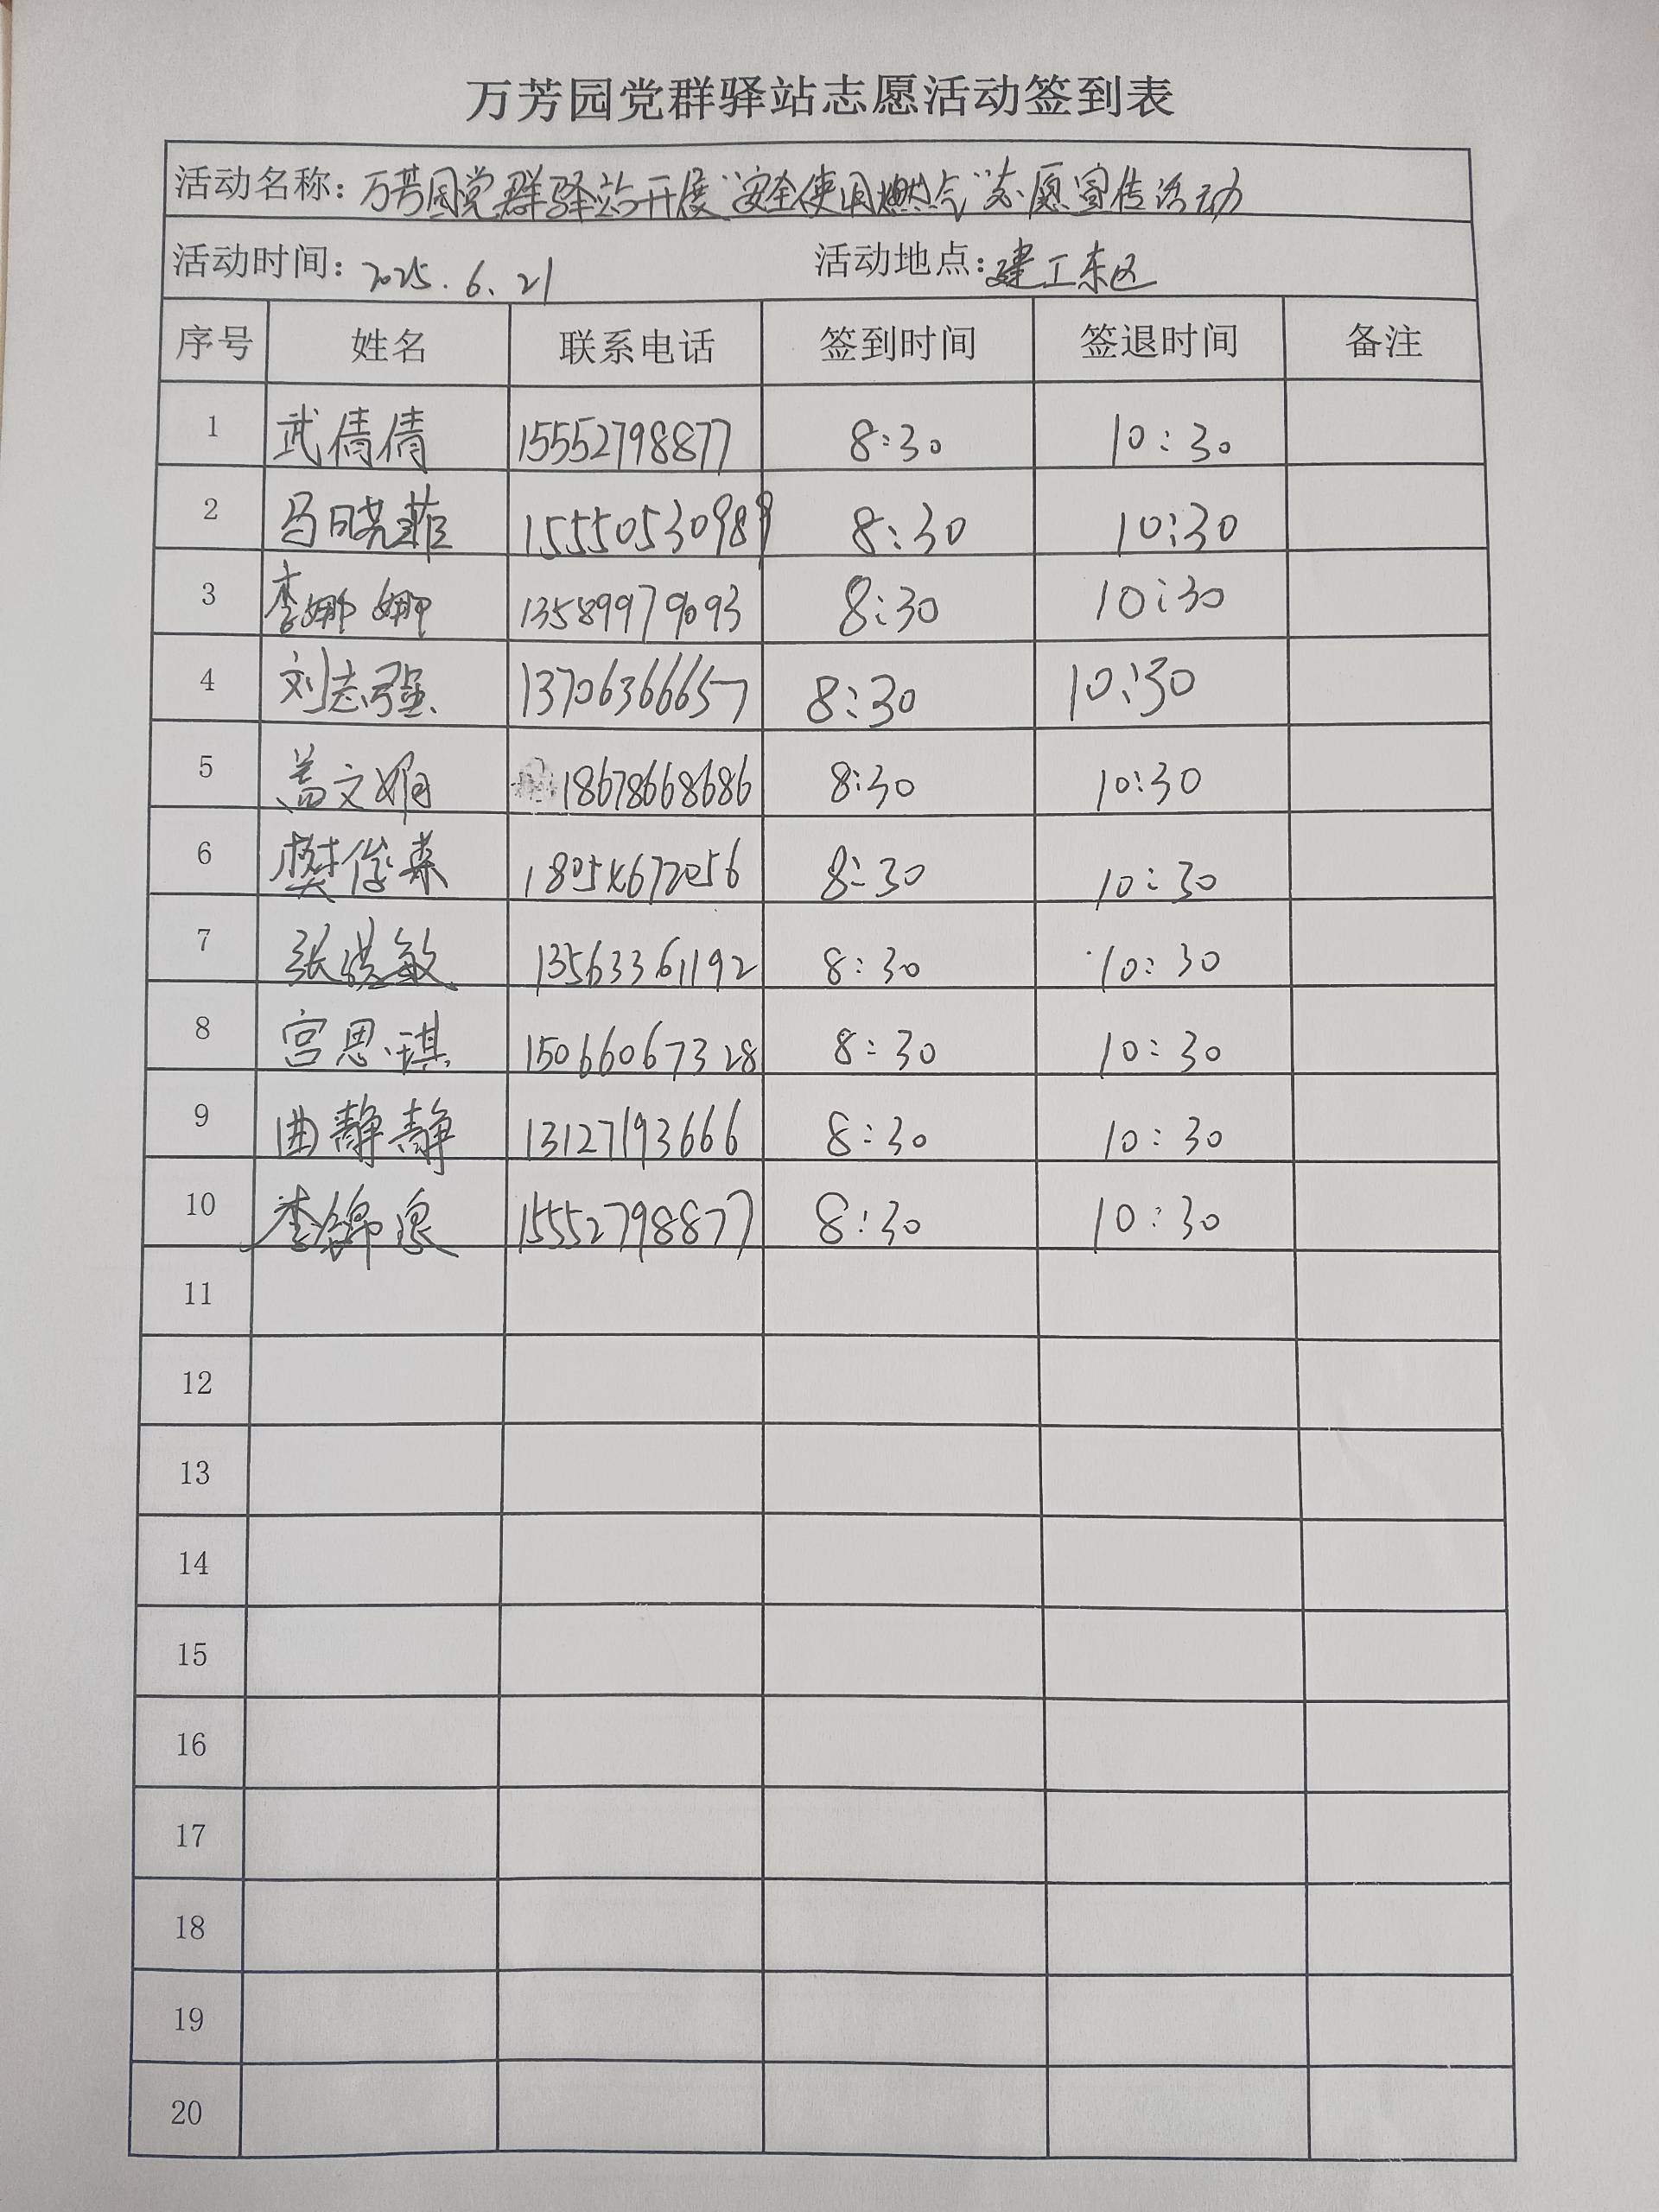 万芳园党群驿站志愿活动签到表
活动名称：万芳园党群驿站开展“安全使用燃气”志愿宣传活动
活动时间：2025.6.21 活动地点：建工东区
序号 姓名 联系电话 签到时间 签退时间 备注
1 武倩倩 15552798877 8:30 10:30
2 马晓菲 15550530989 8:30 10:30
3 李娜娜 13589979093 8:30 10:30
4 刘志强 13706366657 8:30 10:30
5 盖文娟 18678668686 8:30 10:30
6 樊俊森 18054672056 8:30 10:30
7 张洪敏 13563361192 8:30 10:30
8 宫思琪 15066067328 8:30 10:30
9 曲静静 13127193666 8:30 10:30
10 李锦 15552798877 8:30 10:30
11
12
13
14
15
16
17
18
19
20